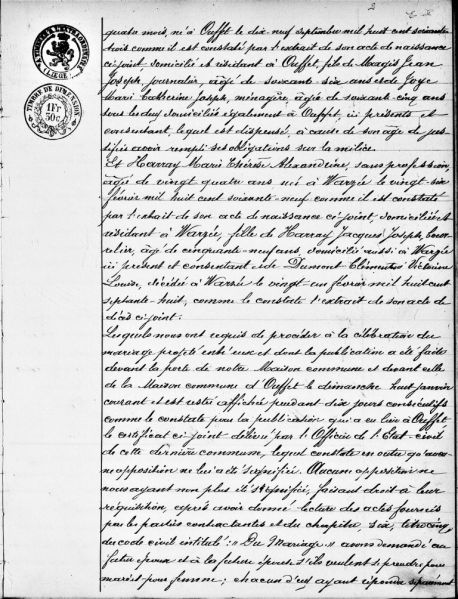 2
LIÈGE
TIMBRE DE DIMENSION
1 Fr
50 c
quatre mois, né à Ouffet le dix-neuf septembre mil huit cent soixante
trois comme il est constaté par l'extrait de son acte de naissance
ci-joint domicilié et résidant à Ouffet, fils de Magis Jean
Joseph, journalier, âgé de soixante six ans et de Joye
Marie Catherine Joseph, ménagère, âgée de soixante cinq ans
tous les deux domiciliés également à Ouffet, ici présents et
consentant, lequel est dispensé, à cause de son âge de jus-
tifier avoir rempli ses obligations sur la milice.
Et Harray Marie Thérèse Alexandrine, sans profession,
âgée de vingt quatre ans née à Warzée le vingt-six
février mil huit cent soixante-neuf comme il est constaté
par l'extrait de son acte de naissance ci-joint, domiciliée et
résidant à Warzée, fille de Harray Jacques Joseph, bour-
relier, âgé de cinquante-neuf ans, domicilié aussi à Warzée
ici présent et consentant et de Dumont Clémentine Victorine
Louise, décédée à Warzée le vingt-un février mil huit cent
septante-huit, comme le constate l'extrait de son acte de
décès ci-joint:
Lesquels nous ont requis de procéder à la célébration du
mariage projeté entre eux et dont la publication a été faite
devant la porte de notre Maison commune et devant celle
de la Maison commune d'Ouffet le dimanche huit janvier
courant et est restée affichée pendant dix jours consécutifs
comme le constate pour la publication qui a eu lieu à Ouffet
le certificat ci-joint délivré par l'Officier de l'Etat-civil
de cette dernière commune, lequel constate en outre qu'aucu-
ne opposition ne lui a été signifiée. Aucune opposition ne
nous ayant non plus été signifiée, faisant droit à leur
réquisition, après avoir donné lecture des actes fournis
par les parties contractantes et du chapitre six, titre cinq
du code civil intitulé: "Du Mariage" avons demandé au
futur époux et à la future épouse s'ils veulent se prendre pour
mari et pour femme; chacun d'eux ayant répondu séparément